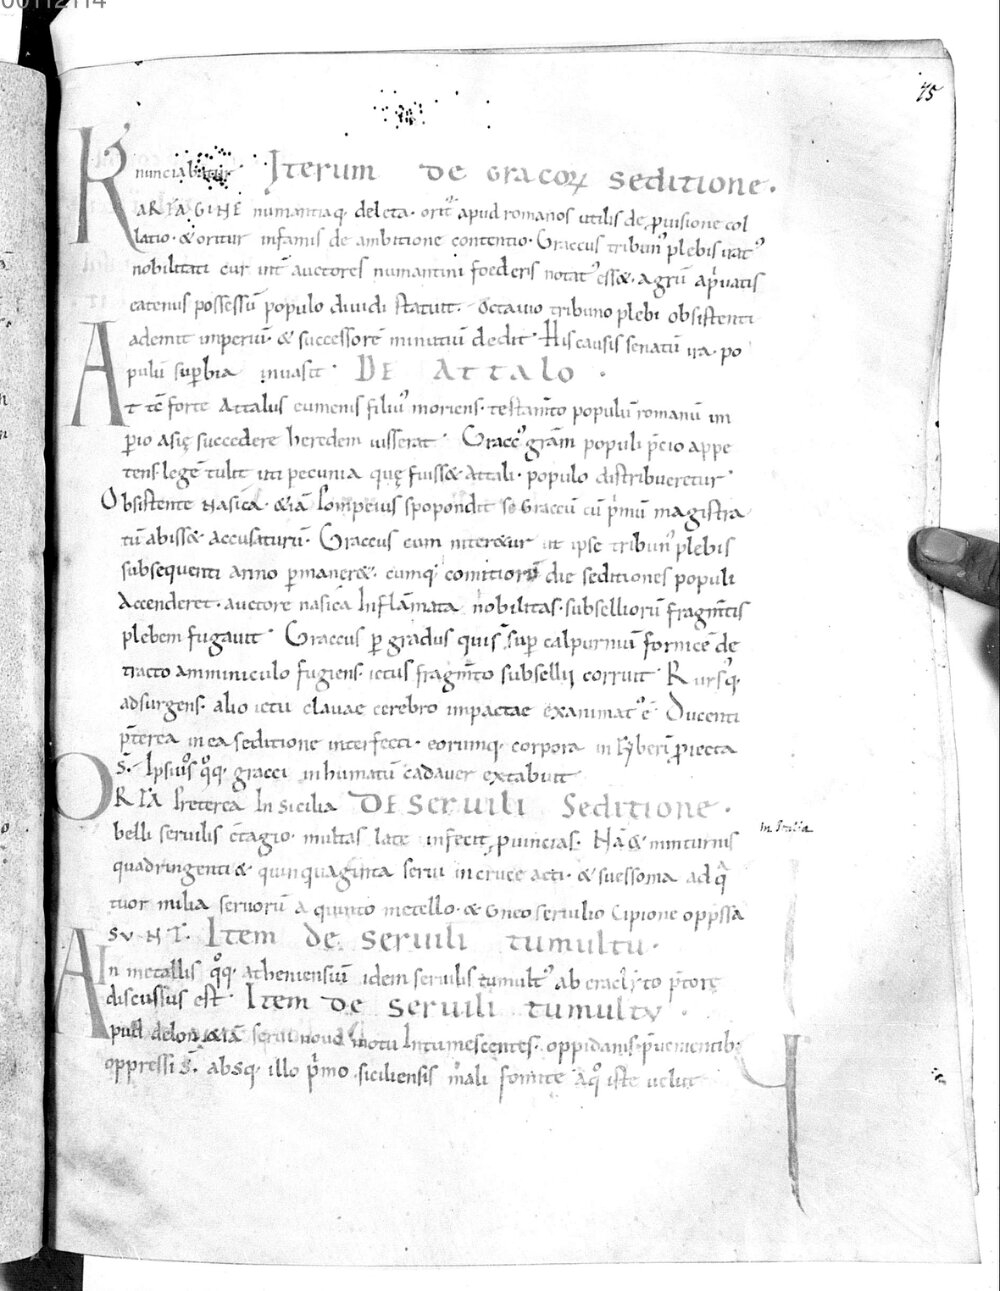 00112114
75
nunciabitur Iterum de Gracoꝝ seditione.
KARTAGINE numantiaq; deleta. orit᷒ apud romanos utilis de ꝓuisione col
latio. & oritur infamis de ambitione contentio. Graccus tribun᷒ plebis irat᷒
nobilitati cur int̄ auctores numantini foederis notat᷒ ess&. agrū a p̱uatis
catenus possessū populo diuidi statuit. Octauio tribuno plebi obsistenti
ademit imperiū. & successorē minutiū dedit. His causis senatū ira. po
pulū suꝑbia inuasit. DE ATTALO.
At tc̄ forte Attalus eumenis filiu᷒ moriens. testam̄to populū romanū im
ꝑio asię succedere heredem iusserat. Gracc᷒ gr̄am populi p̄cio appe
tens. legē tulit uti pecunia quę fuiss& Attali. populo distribueretur
Obsistente Nasica. &iā Pompeius spopondit se Graccū cū p̱mū magistra
tū abiss& accusaturū. Graccus cum niter&ur ut ipse tribun᷒ plebis
subsequenti anno ꝑmaner&. cumq; comitiorū die seditiones populi
Accenderet. auctore nasica Inflāmata nobilitas. subselliorū fragm̄tis
plebem fugauit. Graccus ꝑ gradus qui s̄ suꝑ calpurniū fornicē de
tracto amminiculo fugiens. ictus fragm̄to subsellij corruit. Rurs᷒q;
adsurgens. alio ictu clauae cerebro impactae exanimat᷒ ē. Ducenti
p̄terea in ea seditione interfecti. eorumq; corpora in tyberī ꝓiecta
s̄. Ipsius qͦq; gracci inhumatū cadauer extabuit
ORTA Preterea In Sicilia DE Seruili Seditione.
belli seruilis c̄tagio. multas late infecit ꝓuincias. Nā & minturnis
In Italia
quadringenti & quinquaginta serui in cruce acti. & suessoma ad qͣ
tuor milia seruorū a quinto metello. & Gneo seruilio Cipione opp̄ssa
SUNT. Item de seruili tumultu.
In metallis qͦq; atheniensiū idem seruilis tumult᷒ ab eraclyto p̄torę
discussus est. Item de seruili tumultu.
Apud delon &iā serui nouo motu Intumescentes. oppidanis. p̱uenientib;
oppressi s̄. absq; illo p̱mo siciliensis mali fomite a qͦ iste uelut